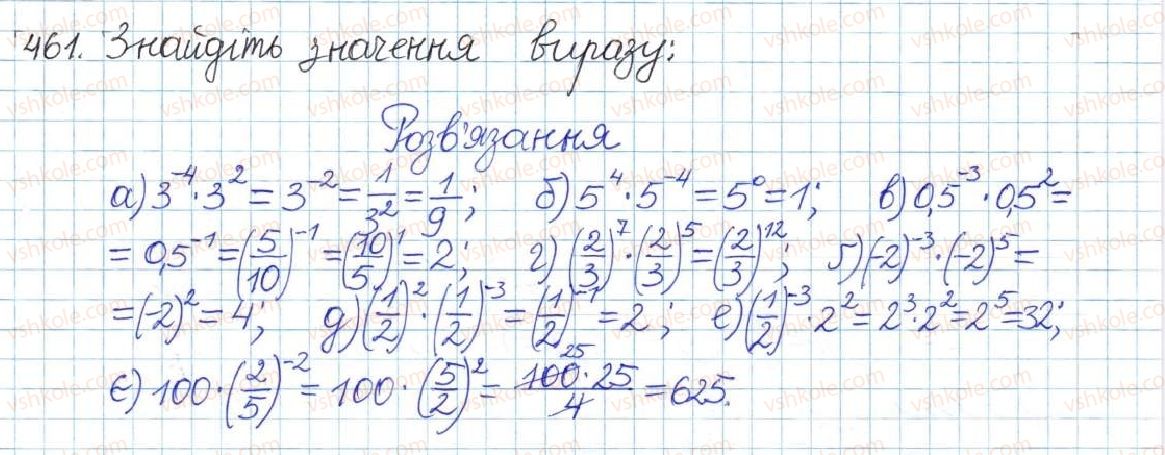 461. Знайдіть значення виразу:
Розв'язання
а) 3⁻⁴ · 3² = 3⁻² = 1/3² = 1/9; б) 5⁴ · 5⁻⁴ = 5⁰ = 1; в) 0,5⁻³ · 0,5² =
= 0,5⁻¹ = (5/10)⁻¹ = (10/5)¹ = 2; г) (2/3)⁷ · (2/3)⁵ = (2/3)¹²; ґ) (-2)⁻³ · (-2)⁵ =
= (-2)² = 4; д) (1/2)² · (1/2)⁻³ = (1/2)⁻¹ = 2; е) (1/2)⁻³ · 2² = 2³ · 2² = 2⁵ = 32;
є) 100 · (2/5)⁻² = 100 · (5/2)² = 25 100 · 25/4 = 625.